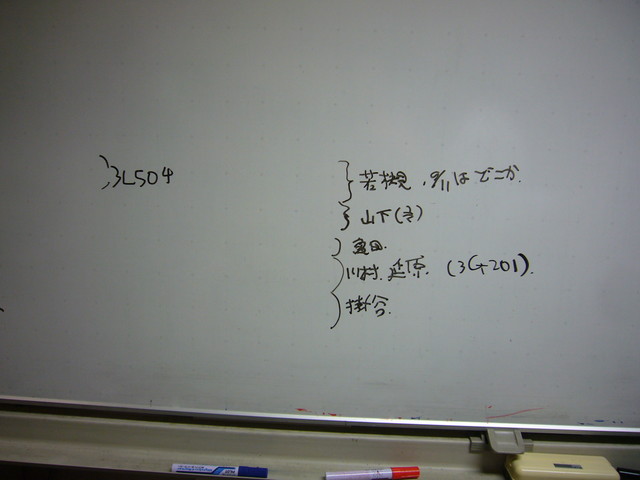 3L504
若槻, 9/11はどこか.
山下(
田.
川村. 延原. (3G201).
掛谷.